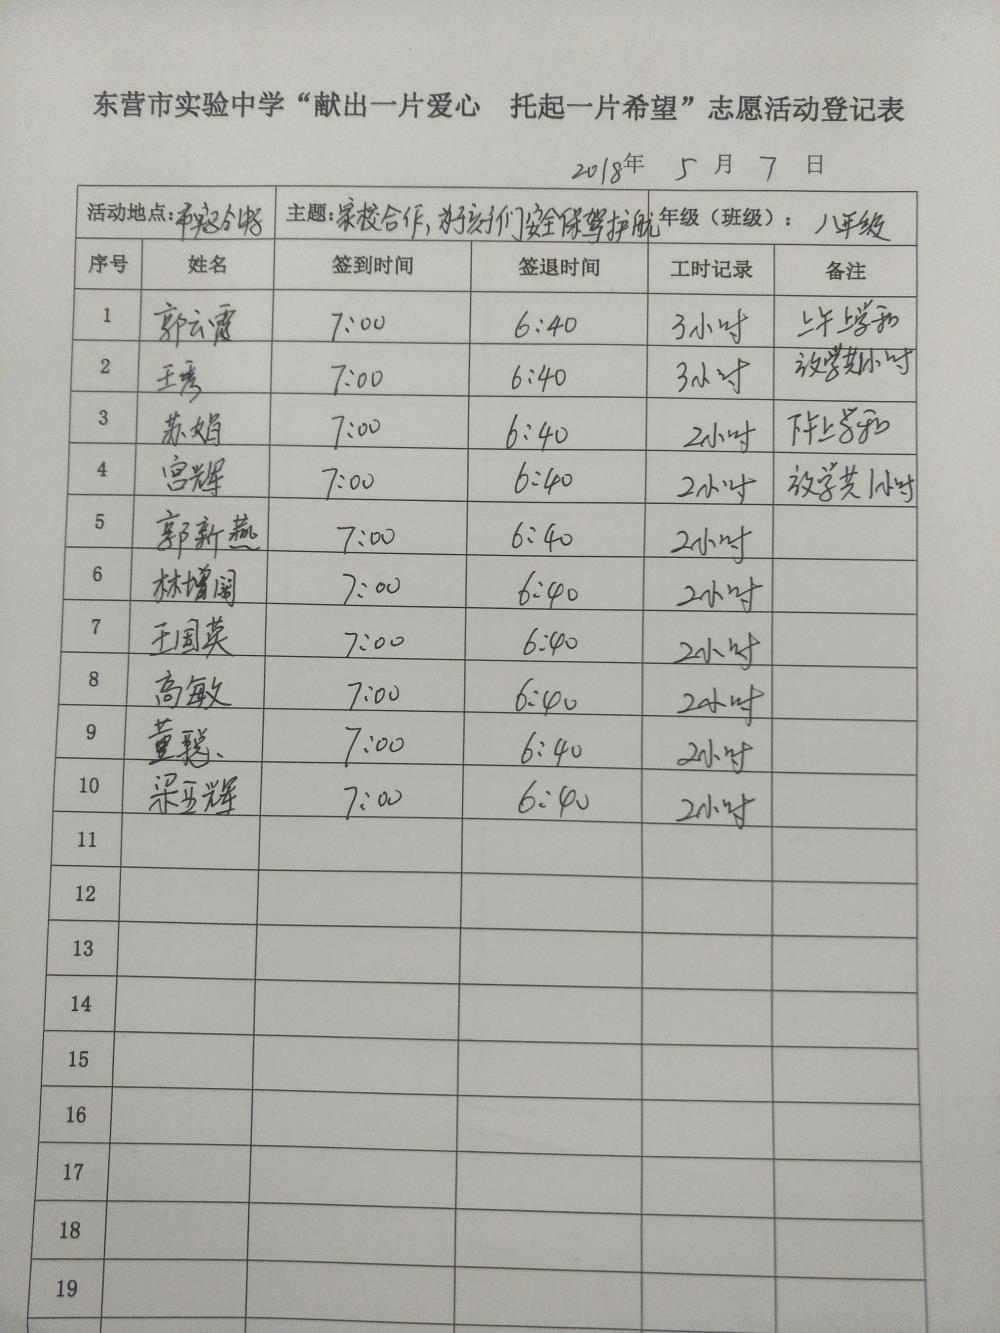 东营市实验中学“献出一片爱心 托起一片希望”志愿活动登记表
2018年 5 月 7 日
活动地点: 主题: 家校合作,为孩子们安全保驾护航 年级(班级): 八年级
序号 姓名 签到时间 签退时间 工时记录 备注
1 郭云霞 7:00 6:40 3小时 上午上学和
2 王秀 7:00 6:40 3小时 放学共1小时
3 苏娟 7:00 6:40 2小时 下午上学和
4 宫辉 7:00 6:40 2小时 放学共1小时
5 郭新燕 7:00 6:40 2小时
6 林增 7:00 6:40 2小时
7 王国英 7:00 6:40 2小时
8 高敏 7:00 6:40 2小时
9 董聪、 7:00 6:40 2小时
10 梁亚辉 7:00 6:40 2小时
11
12
13
14
15
16
17
18
19